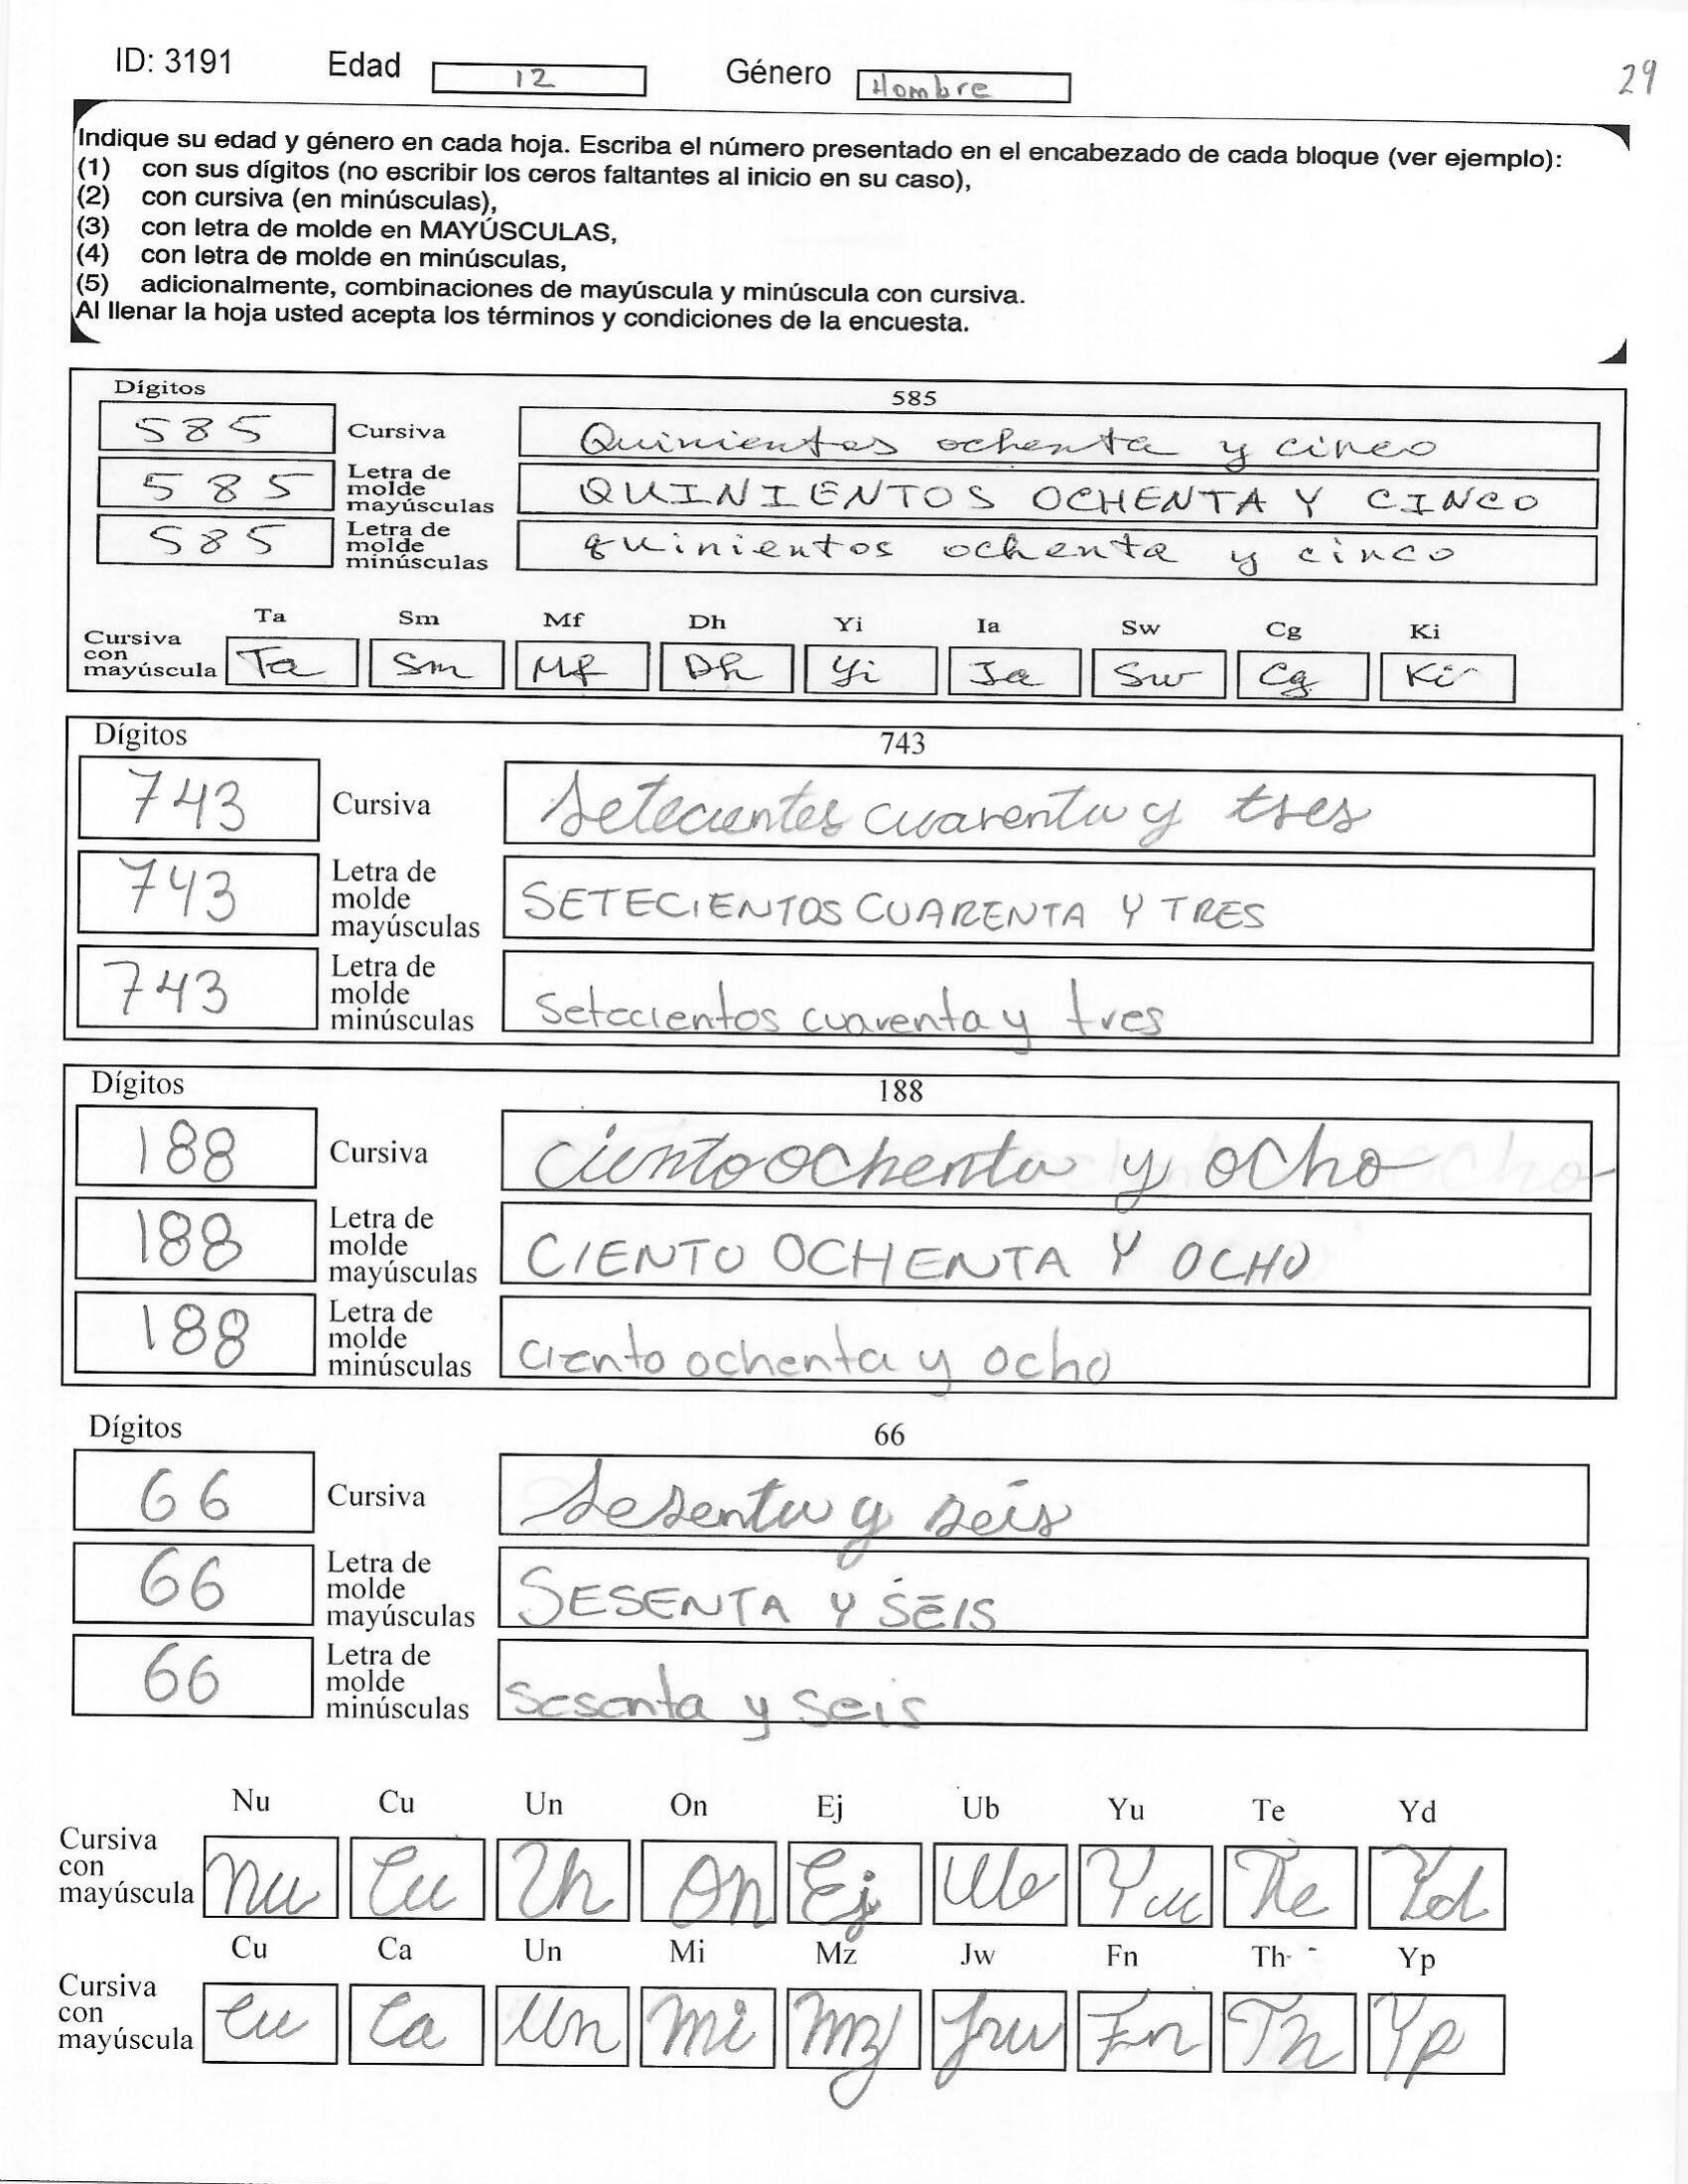 ID: 3191 Edad 12 Género Hombre 29
Indique su edad y género en cada hoja. Escriba el número presentado en el encabezado de cada bloque (ver ejemplo):
(1) con sus dígitos (no escribir los ceros faltantes al inicio en su caso),
(2) con cursiva (en minúsculas),
(3) con letra de molde en MAYÚSCULAS,
(4) con letra de molde en minúsculas,
(5) adicionalmente, combinaciones de mayúscula y minúscula con cursiva.
Al llenar la hoja usted acepta los términos y condiciones de la encuesta.
Dígitos 585
585 Cursiva Quinientos ochenta y cinco
585 Letra de molde mayúsculas QUINIENTOS OCHENTA Y CINCO
585 Letra de molde minúsculas quinientos ochenta y cinco
Ta Sm Mf Dh Yi Ia Sw Cg Ki
Cursiva con mayúscula Ta Sm Mf Dh Yi Ia Sw Cg Ki
Dígitos 743
743 Cursiva Setecientos cuarenta y tres
743 Letra de molde mayúsculas SETECIENTOS CUARENTA Y TRES
743 Letra de molde minúsculas setecientos cuarenta y tres
Dígitos 188
188 Cursiva ciento ochenta y ocho
188 Letra de molde mayúsculas CIENTO OCHENTA Y OCHO
188 Letra de molde minúsculas ciento ochenta y ocho
Dígitos 66
66 Cursiva sesenta y seis
66 Letra de molde mayúsculas SESENTA Y SEIS
66 Letra de molde minúsculas sesenta y seis
Nu Cu Un On Ej Ub Yu Te Yd
Cursiva con mayúscula Nu Cu Un On Ej Ub Yu Te Yd
Cu Ca Un Mi Mz Jw Fn Th Yp
Cursiva con mayúscula Cu Ca Un Mi Mz Jw Fn Th Yp